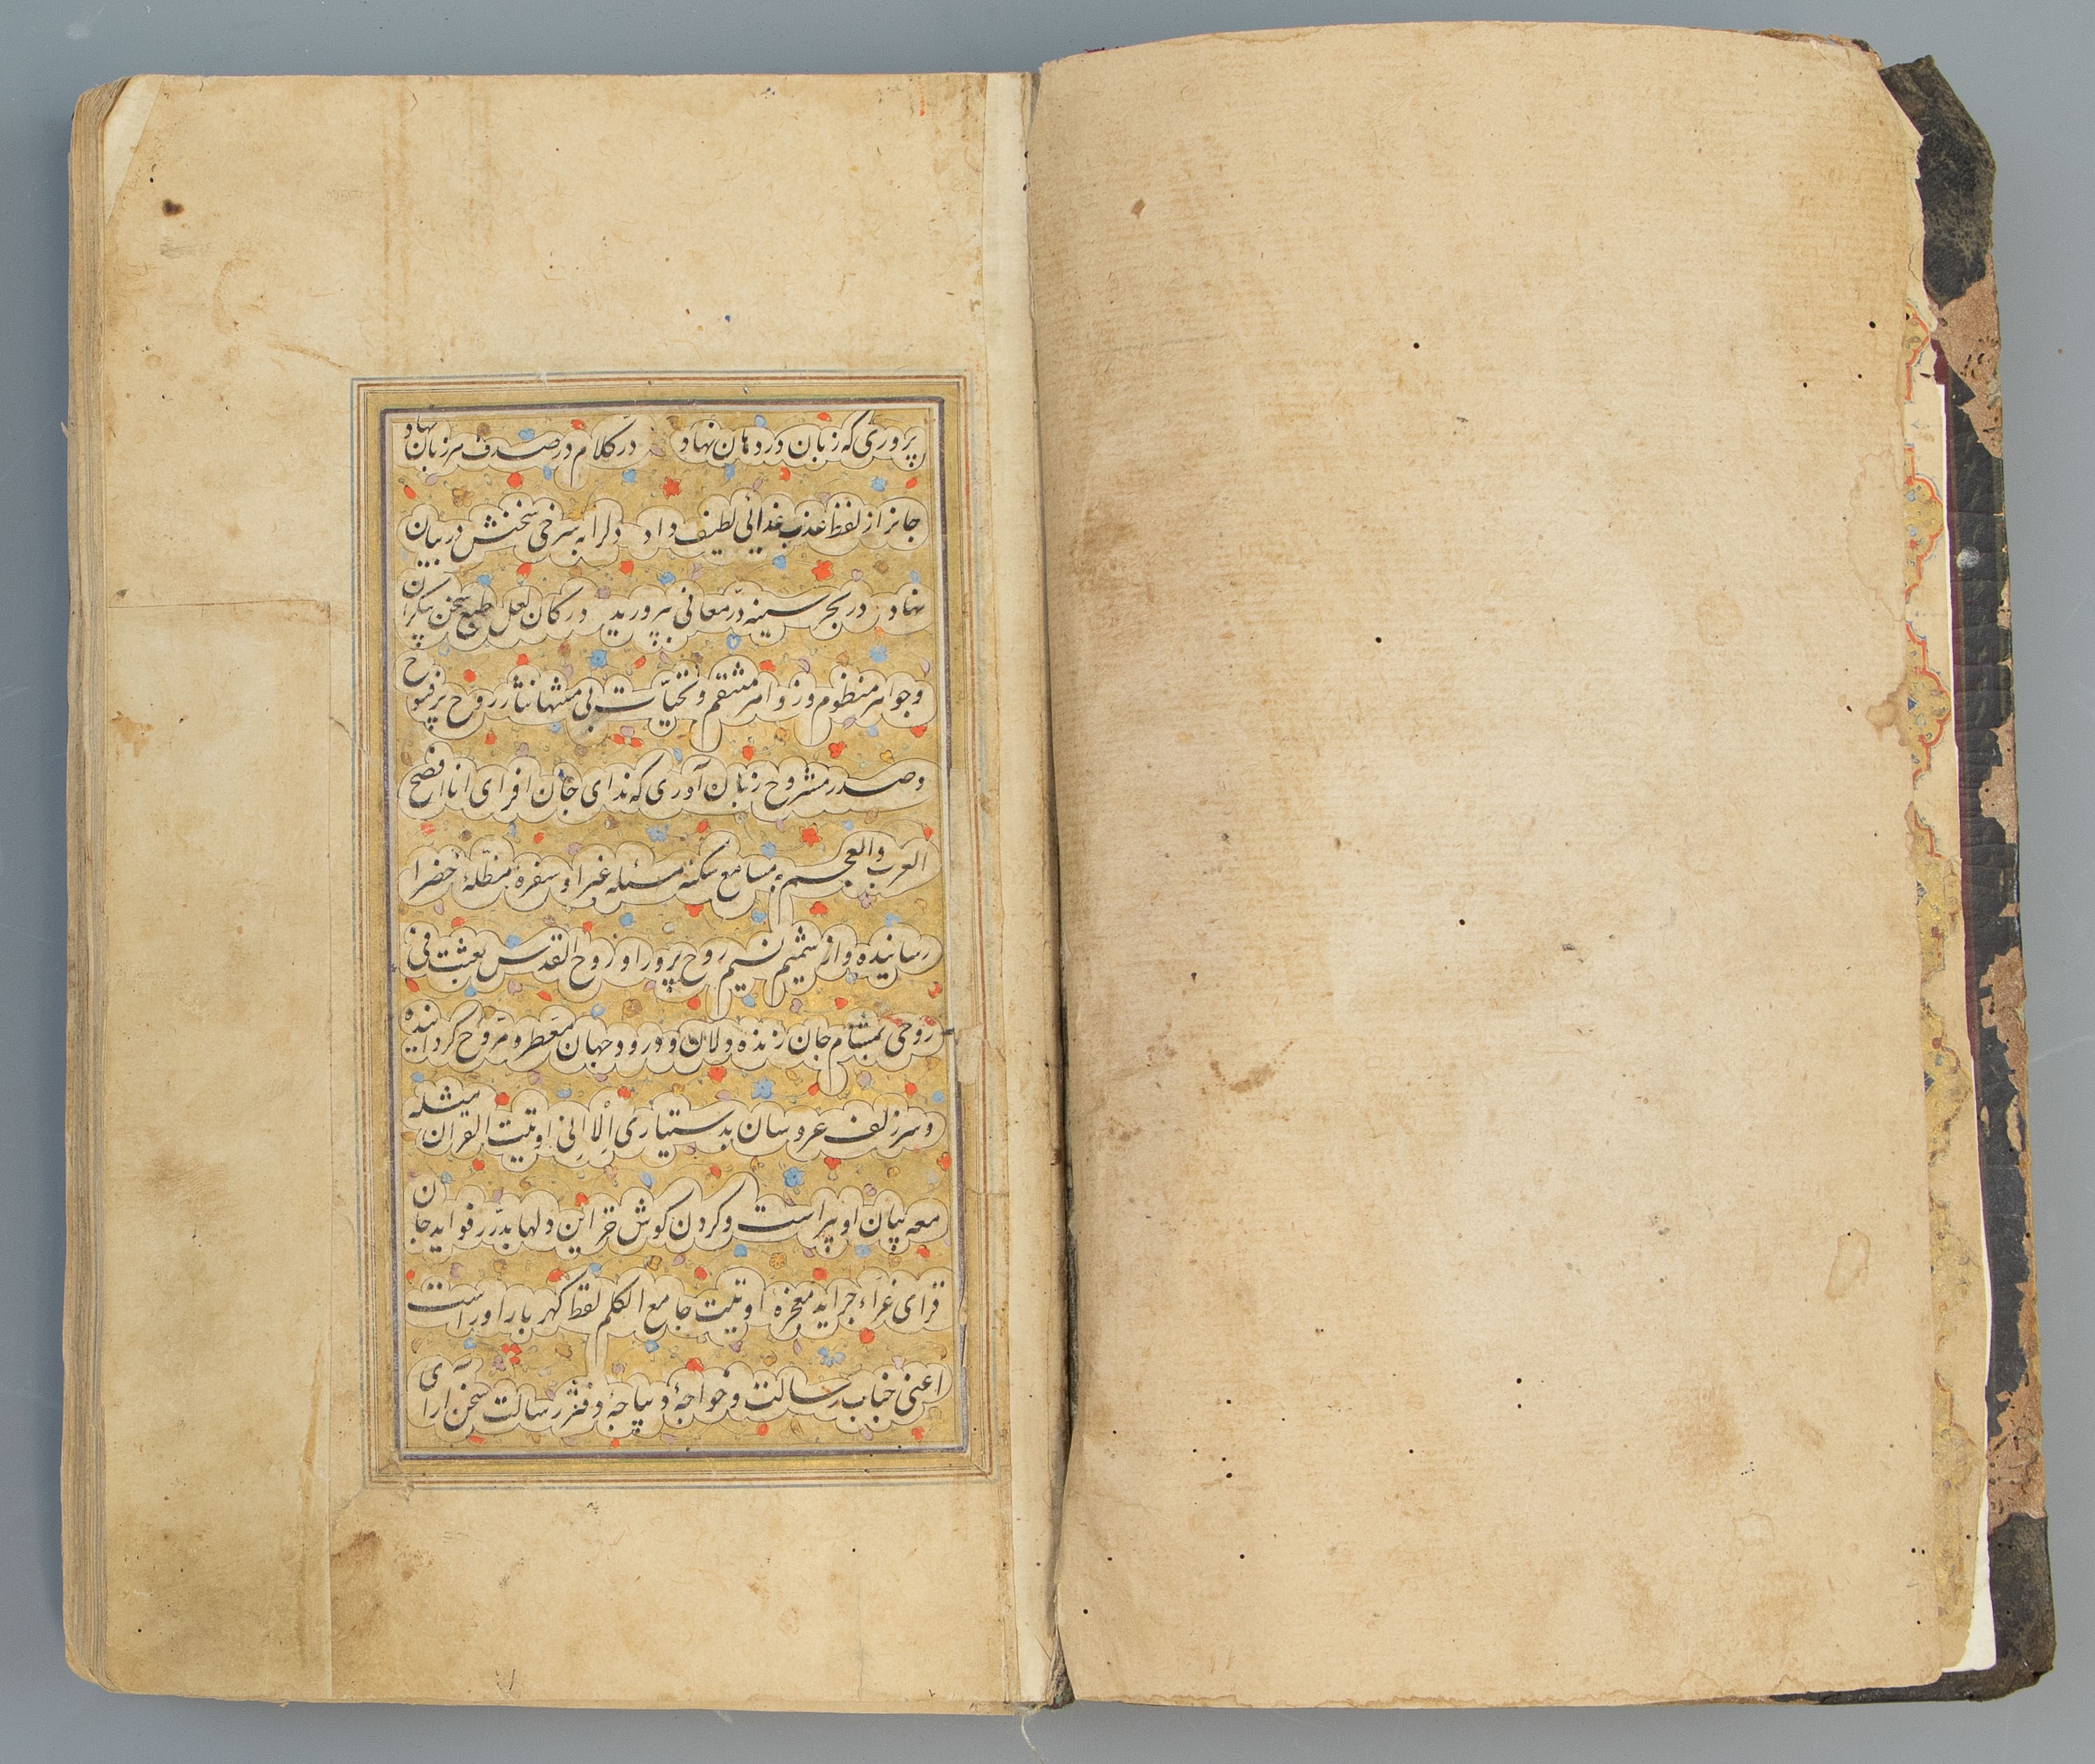 پروری که زبان در دهان نهاد در کلام در صدف هر زبان نهاد
جانرا از لفظ عذب غدائی لطیف داد دلرا به سر خی سخنش در بیان
نهاد در بحر سینه در معانی بپرورید در کان لعل طبع سخن بیکران
وجواهر منظوم وزواهر منتقم وتحیّات بی منتها نثار روح پرفتوح
وصدر مشروح زبان آوری که ندای جان افزای انا افصح
العرب والعجم بمسامع سکنه غبرا و سفرهٔ مظلّهٔ خضرا
رسانیده واز شمیم نسیم روح پرور او روح القدس نفث فی
روحی بمشام جان زنده دلان ودر دو جهان معطر ومروّح کردانیده
وسر زلف عروسان بدستیاری الا انی اوتیت القران مثله
معه پیان او پیراست وکردن کوش خراین دلها بدرر فواید جان
فزای غرّاء جراید معجزهٔ اوتیت جامع الکلم لفظ کهر بار اوراست
اعنی جناب رسالت وخواجهٔ دیباجهٔ دفتر رسالت سخن آرای